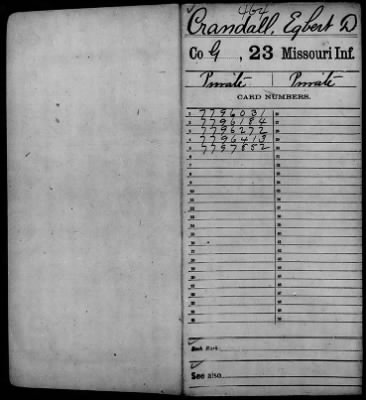 464
Crandall, Egbert D
Co G, 23 Missouri Inf.
Private Private
CARD NUMBERS.
1 7796031
2 7796184
3 7796272
4 7796413
5 7797852
Book Mark
See also